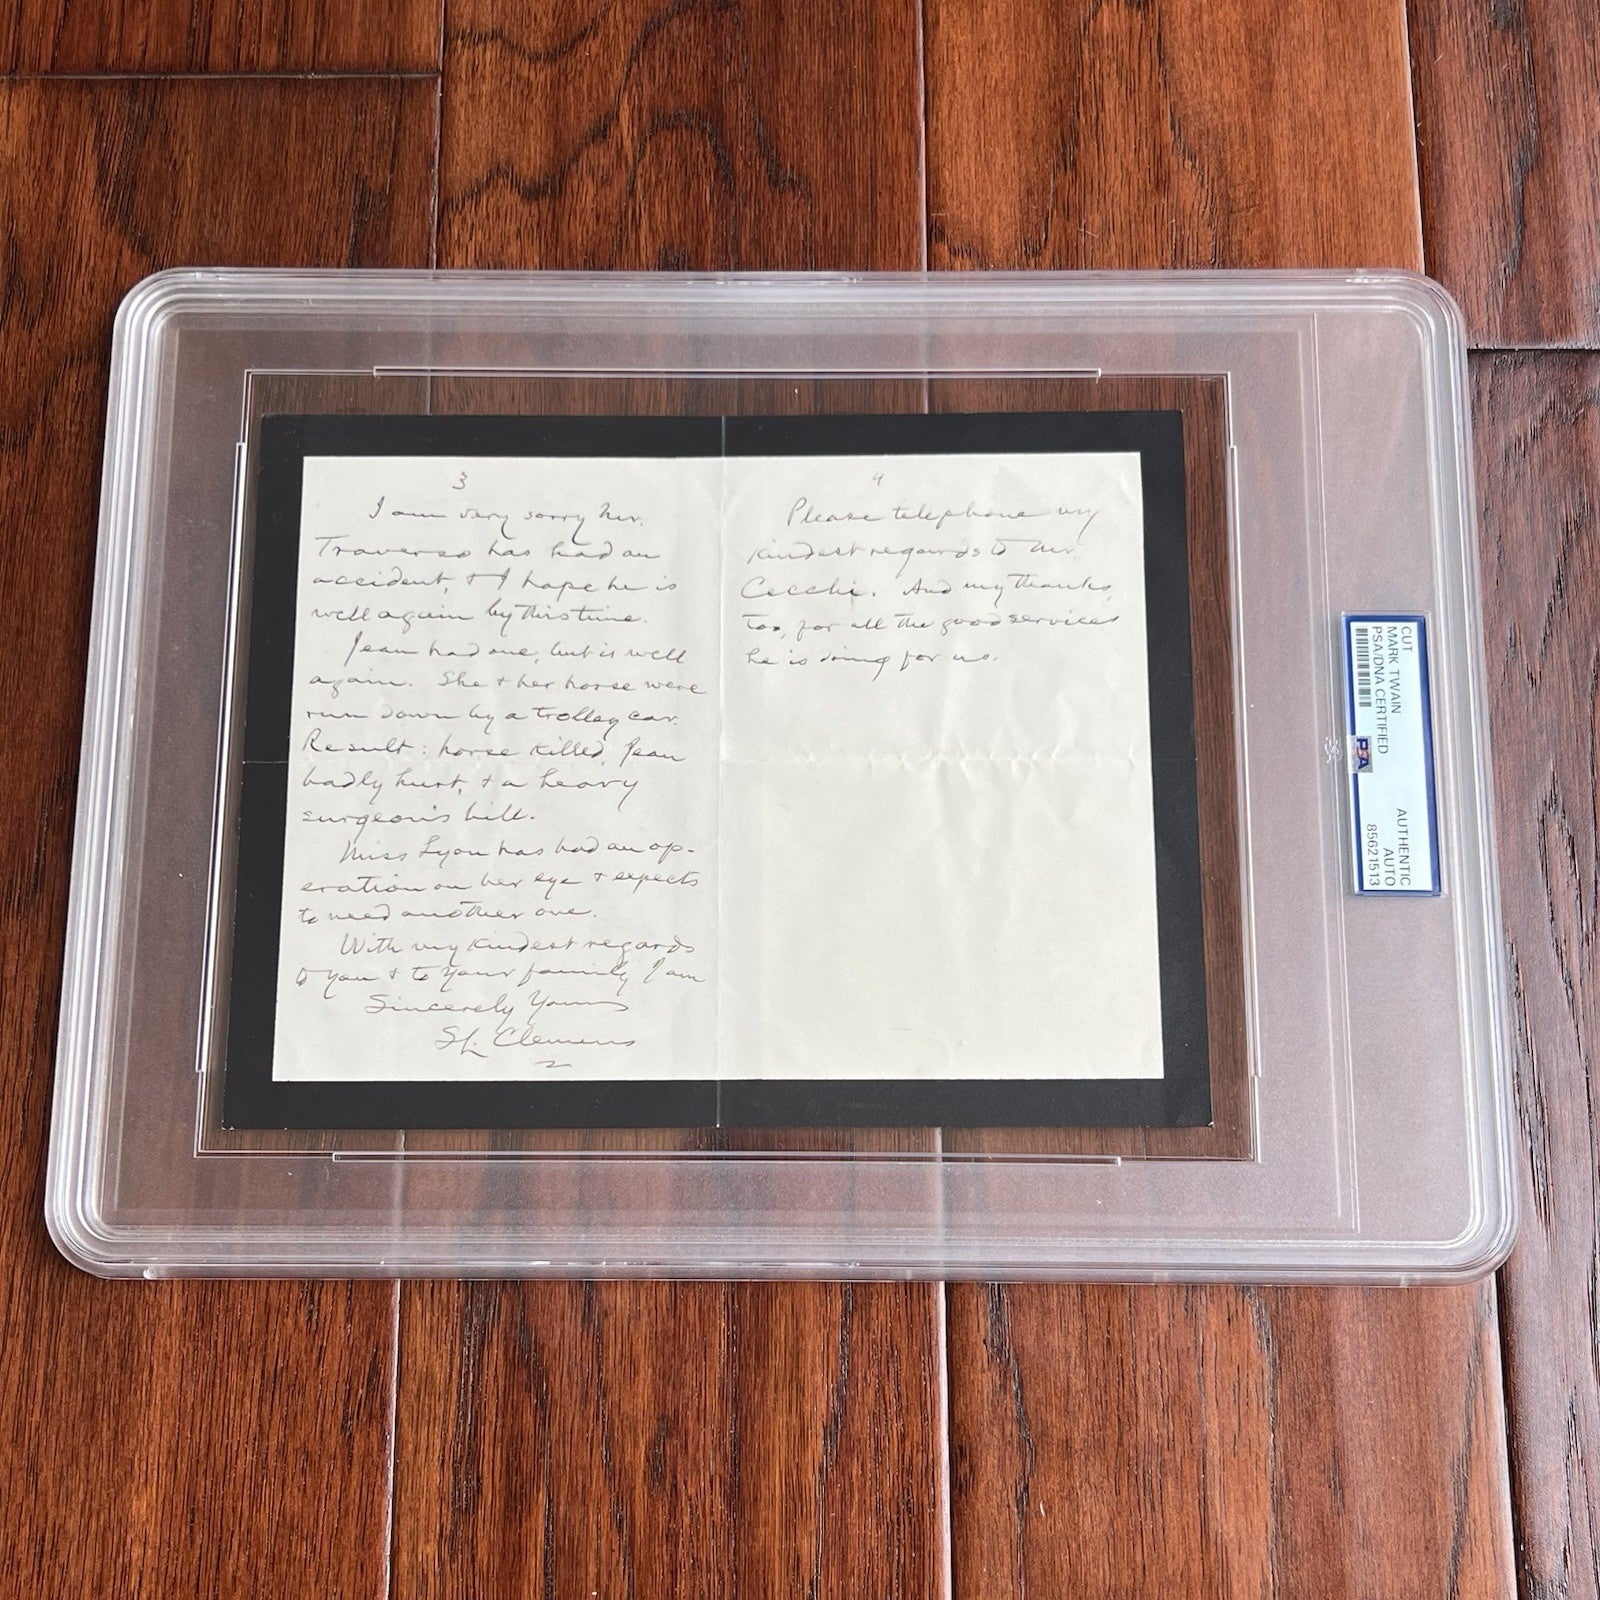 3
I am very sorry Mr.
Traverso has had an
accident, & I hope he is
well again by this time.
Jean had one, but is well
again. She & her horse were
run down by a trolley car.
Result: horse killed, Jean
badly hurt, & a heavy
surgeon's bill.
Miss Lyon has had an op-
eration on her eye & expects
to need another one.
With my kindest regards
to you & to your family I am
Sincerely Yours
SL. Clemens
4
Please telephone my
kindest regards to Mr.
Cecchi. And my thanks,
too, for all the good services
he is doing for us.
CUT
MARK TWAIN
PSA/DNA CERTIFIED
PSA
AUTHENTIC
AUTO
85621513